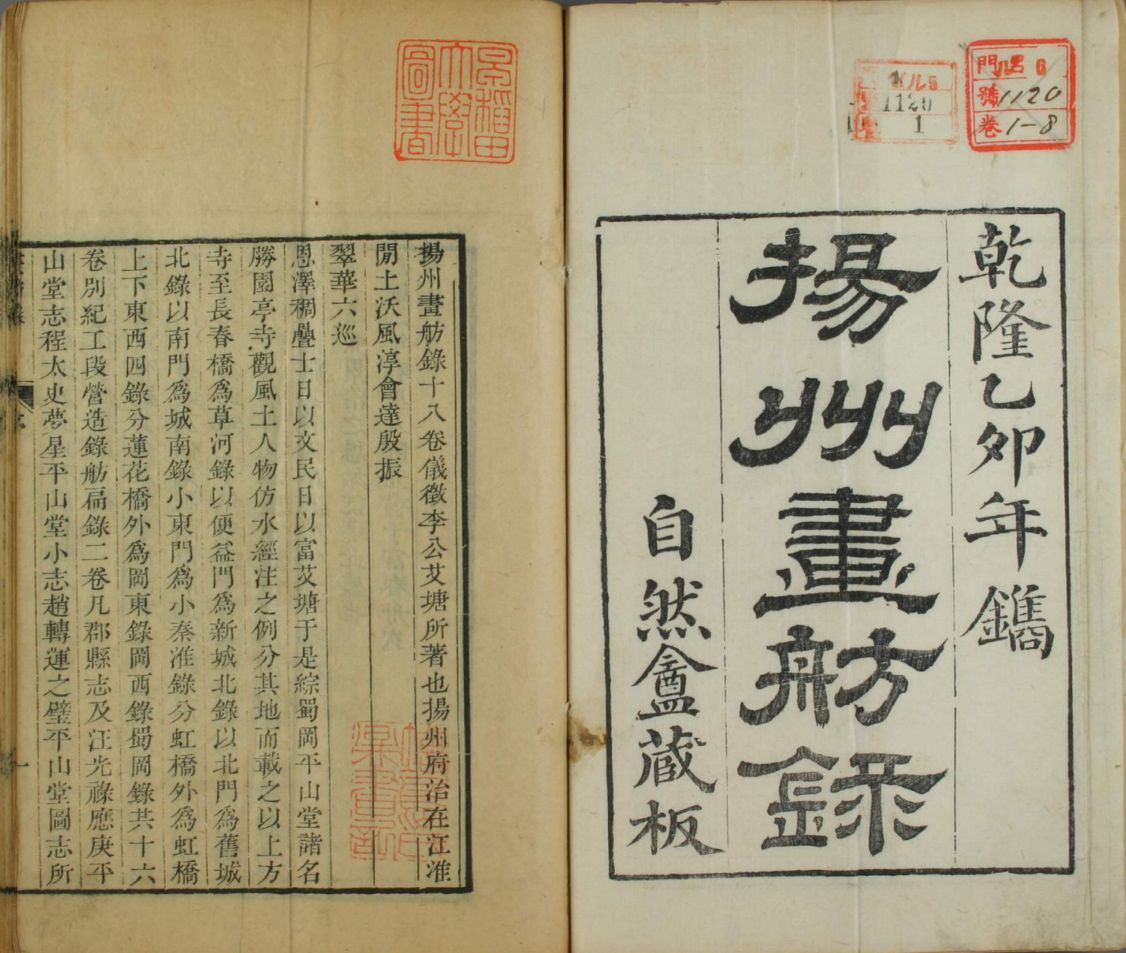 乾隆乙卯年鐫
揚州畫舫錄
自然盦藏板
門 ル 6
號 1120
卷 1-8
ル5
1120
1
早稲田
大學
圖書
揚州畫舫錄十八卷儀徵李公艾塘所著也揚州府治在江淮
閒土沃風淳會達殷振
翠華六巡
恩澤稠疊士日以文民日以富艾塘于是綜蜀岡平山堂諸名
勝園亭寺觀風土人物仿水經注之例分其地而載之以上方
寺至長春橋爲草河錄以便益門爲新城北錄以北門爲舊城
北錄以南門爲城南錄小東門爲小秦淮錄分虹橋外爲虹橋
上下東西四錄分蓮花橋外爲岡東錄岡西錄蜀岡錄共十六
卷別紀工段營造錄舫扁錄二卷凡郡縣志及汪光祿應庚平
山堂志程太史夢星平山堂小志趙轉運之璧平山堂圖志所